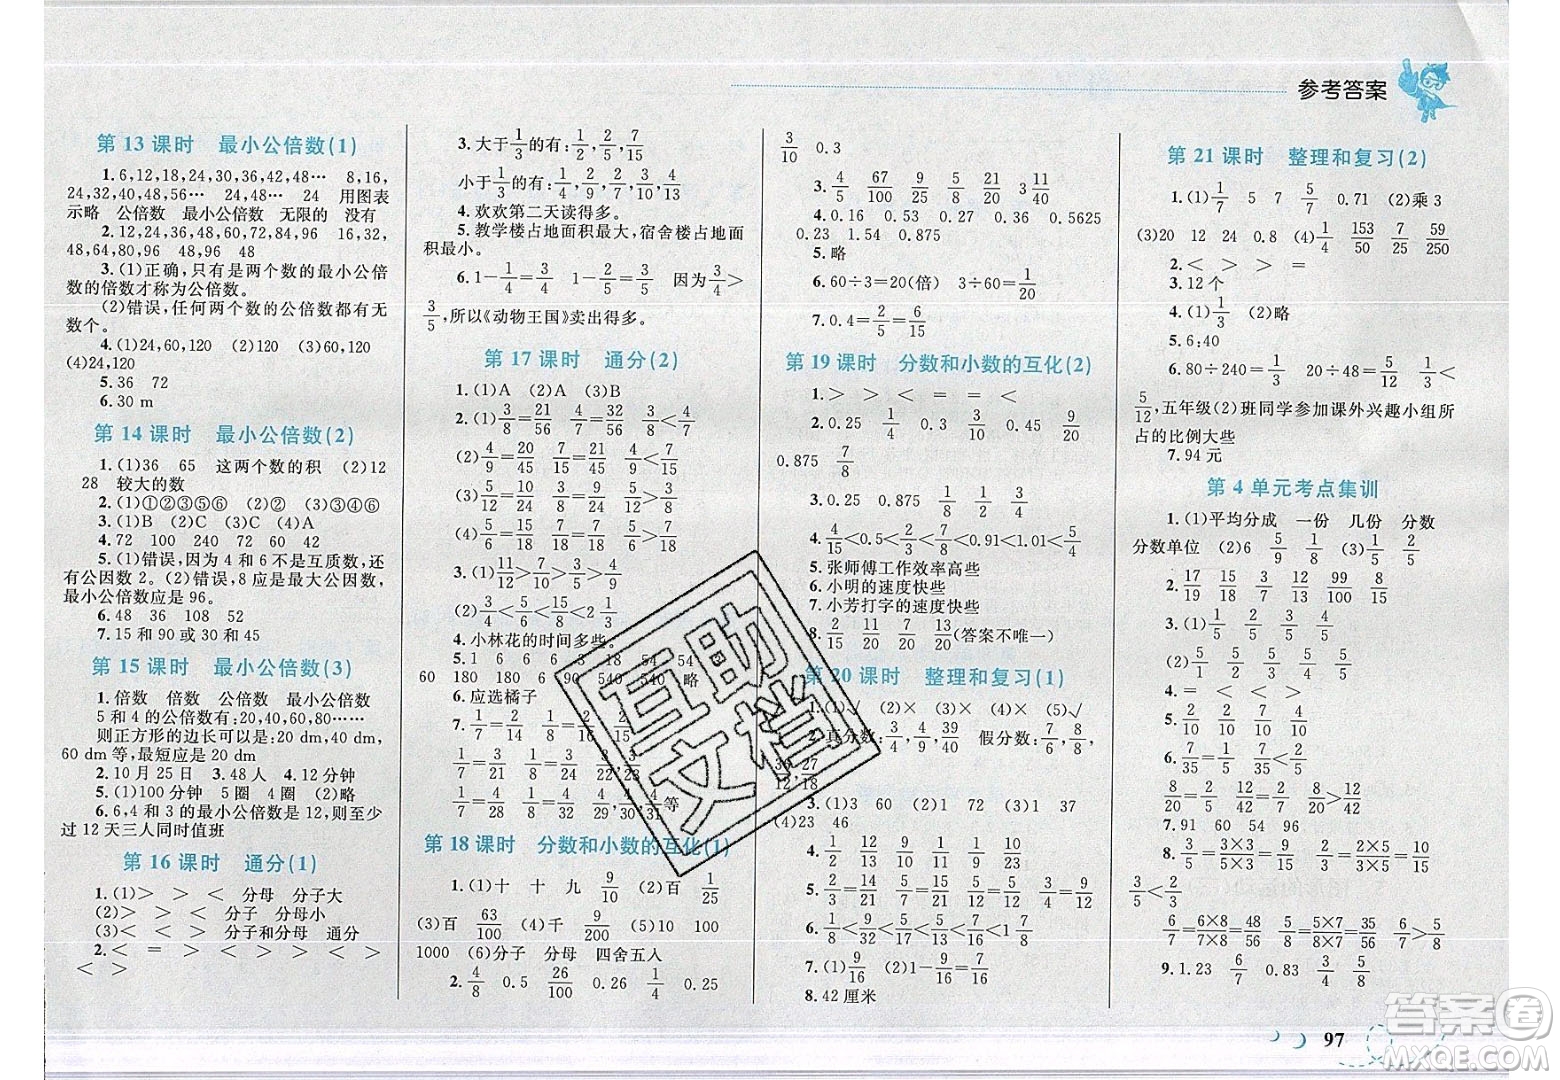 参考答案
第 13 课时　最小公倍数(1)
1. 6,12,18,24,30,36,42,48…　8,16,
24,32,40,48,56…　24,48…　24　用图表
示略　公倍数　最小公倍数　无限的　没有
2. 12,24,36,48,60,72,84,96　16,32,
48,64,80,96　48,96　48
3. (1)正确,只有是两个数的最小公倍
数的倍数才称为公倍数。
(2)错误,任何两个数的公倍数都有无
数个。
4. (1)24,60,120　(2)60,120　(3)120
(4)24,120
5. 36　72
6. 30 m
第 14 课时　最小公倍数(2)
1. (1)36　65　这两个数的积　(2)12
28　较大的数
2. (1)①②③⑤⑥　(2)①③④⑤⑥
3. (1)B　(2)C　(3)B　(4)C
4. 72　100　240　72　60　42
5. (1)错误,因为 4 和 6 不是互质数,还
有公因数 2。(2)错误,8 应是最大公因数,
最小公倍数应是 96。
6. 48　36　108　52
7. 15 和 90 或 30 和 45
第 15 课时　最小公倍数(3)
1. 倍数　倍数　公倍数　最小公倍数
5 和 4 的公倍数有:20,40,60,80……
则正方形的边长可以是:20 dm,40 dm,
60 dm 等,最短应是 20 dm
2. 10 月 25 日　3. 48 人　4. 12 分钟
5. (1)100 分钟　5 圈　4 圈　(2)略
6. 6,4 和 3 的最小公倍数是 12,至少
过 12 天三人同时值班
第 16 课时　通分(1)
1. (1)>　>　<　分母　分子大
(2)>　>　<　分子　分母小
(3)<　<　>　分子和分母　通分
2. <　=　>　<　>　>　>　<
<　>
3. 大于1/3的有:1/2,2/5,7/15
小于1/3的有:1/4,1/5,1/6,3/14
4. 欢欢第二天读得多。
5. 教学楼占地面积最大,宿舍楼占地面
积最小。
6. 1-1/4=3/4　1-2/5=3/5　因为3/4>
3/5,所以《动物王国》卖出得多。
第 17 课时　通分(2)
1. (1)A　(2)A　(3)B
2. (1)3/8=21/56　4/7=32/56　3/8<4/7
(2)4/9=20/45　7/15=21/45　4/9<7/15
(3)5/12=10/24　3/8=9/24　5/12>3/8
(4)5/6=15/18　7/18=7/18　5/6>7/18
(2)3/4<5/6<15/8<2 1/3
4. 小林花的时间多些。
6. 应选橘子
第 18 课时　分数和小数的互化(1)
1. (1)十　十　九　9/10　(2)百　1/25
(3)百　63/100　(4)千　9/200　(5)10　100
1000　(6)分子　分母　四舍五人
2. 4/8　0.5　26/100　0.26　1/4　0.25
3/10　0.3
3. 4/5　67/100　9/25　9/20　1/8
4. 0.16　0.53　0.27　0.36　0.5625
0.23　1.54　0.875
5. 略
6. 60÷3=20(倍)　3÷60=1/20
7. 0.4=2/5=6/15
第 19 课时　分数和小数的互化(2)
1. >　>　<　=　=　<
2. 0.25　1/4　0.4　2/5　0.45　9/20
0.875　7/8
3. 0.25　0.875　1/8　1/2　1/5
5. 张师傅工作效率高些
6. 小明的速度快些
7. 小芳打字的速度快些
8. 2/15　4/15　7/15　13/15(答案不唯一)
第 20 课时　整理和复习(1)
1. (1)√　(2)×　(3)×　(4)×　(5)√
2. 真分数:3/4,4/9,39/40　假分数:7/6,8/5,
36/12,27/18
3. (1)3　60　(2)1　102　(3)1　37
(4)23　46
6. 1/6<2/9<8/15<9/16
7. (1)9/16　(2)1-9/16=7/16
8. 42 厘米
第 21 课时　整理和复习(2)
1. (1)1/7　5　7　5/7　0.71　(2)乘 3
(3)20　12　24　0.8　(4)1/4　153/50　59/250
2. <　>　>　=
3. 12 个
4. (1)1/3　(2)略
5. 6:40
6. 80÷240=1/3　20÷48=5/12　1/3<
5/12,五年级(2)班同学参加课外兴趣小组所
占的比例大些
7. 94 元
第 4 单元考点集训
1. (1)平均分成　一份　几份　分数
分数单位　(2)6　5/9　1/8　(3)1/5　2/5
2. 17/19　15/16　7/20
3. (1)1/5　(2)1/5
4. =　<　<　>　<
7. 91　60　54　96
8. 3/5=3×3/5×3=9/15　2/3=2×5/3×5=10/15
3/5<2/3
6/7=6×8/7×8=48/56　5/8=5×7/8×7=35/56　6/7>5/8
9. 1.23　6/7　0.83　5/6　5/8
97
互助文档
答案圈
MXQE.COM